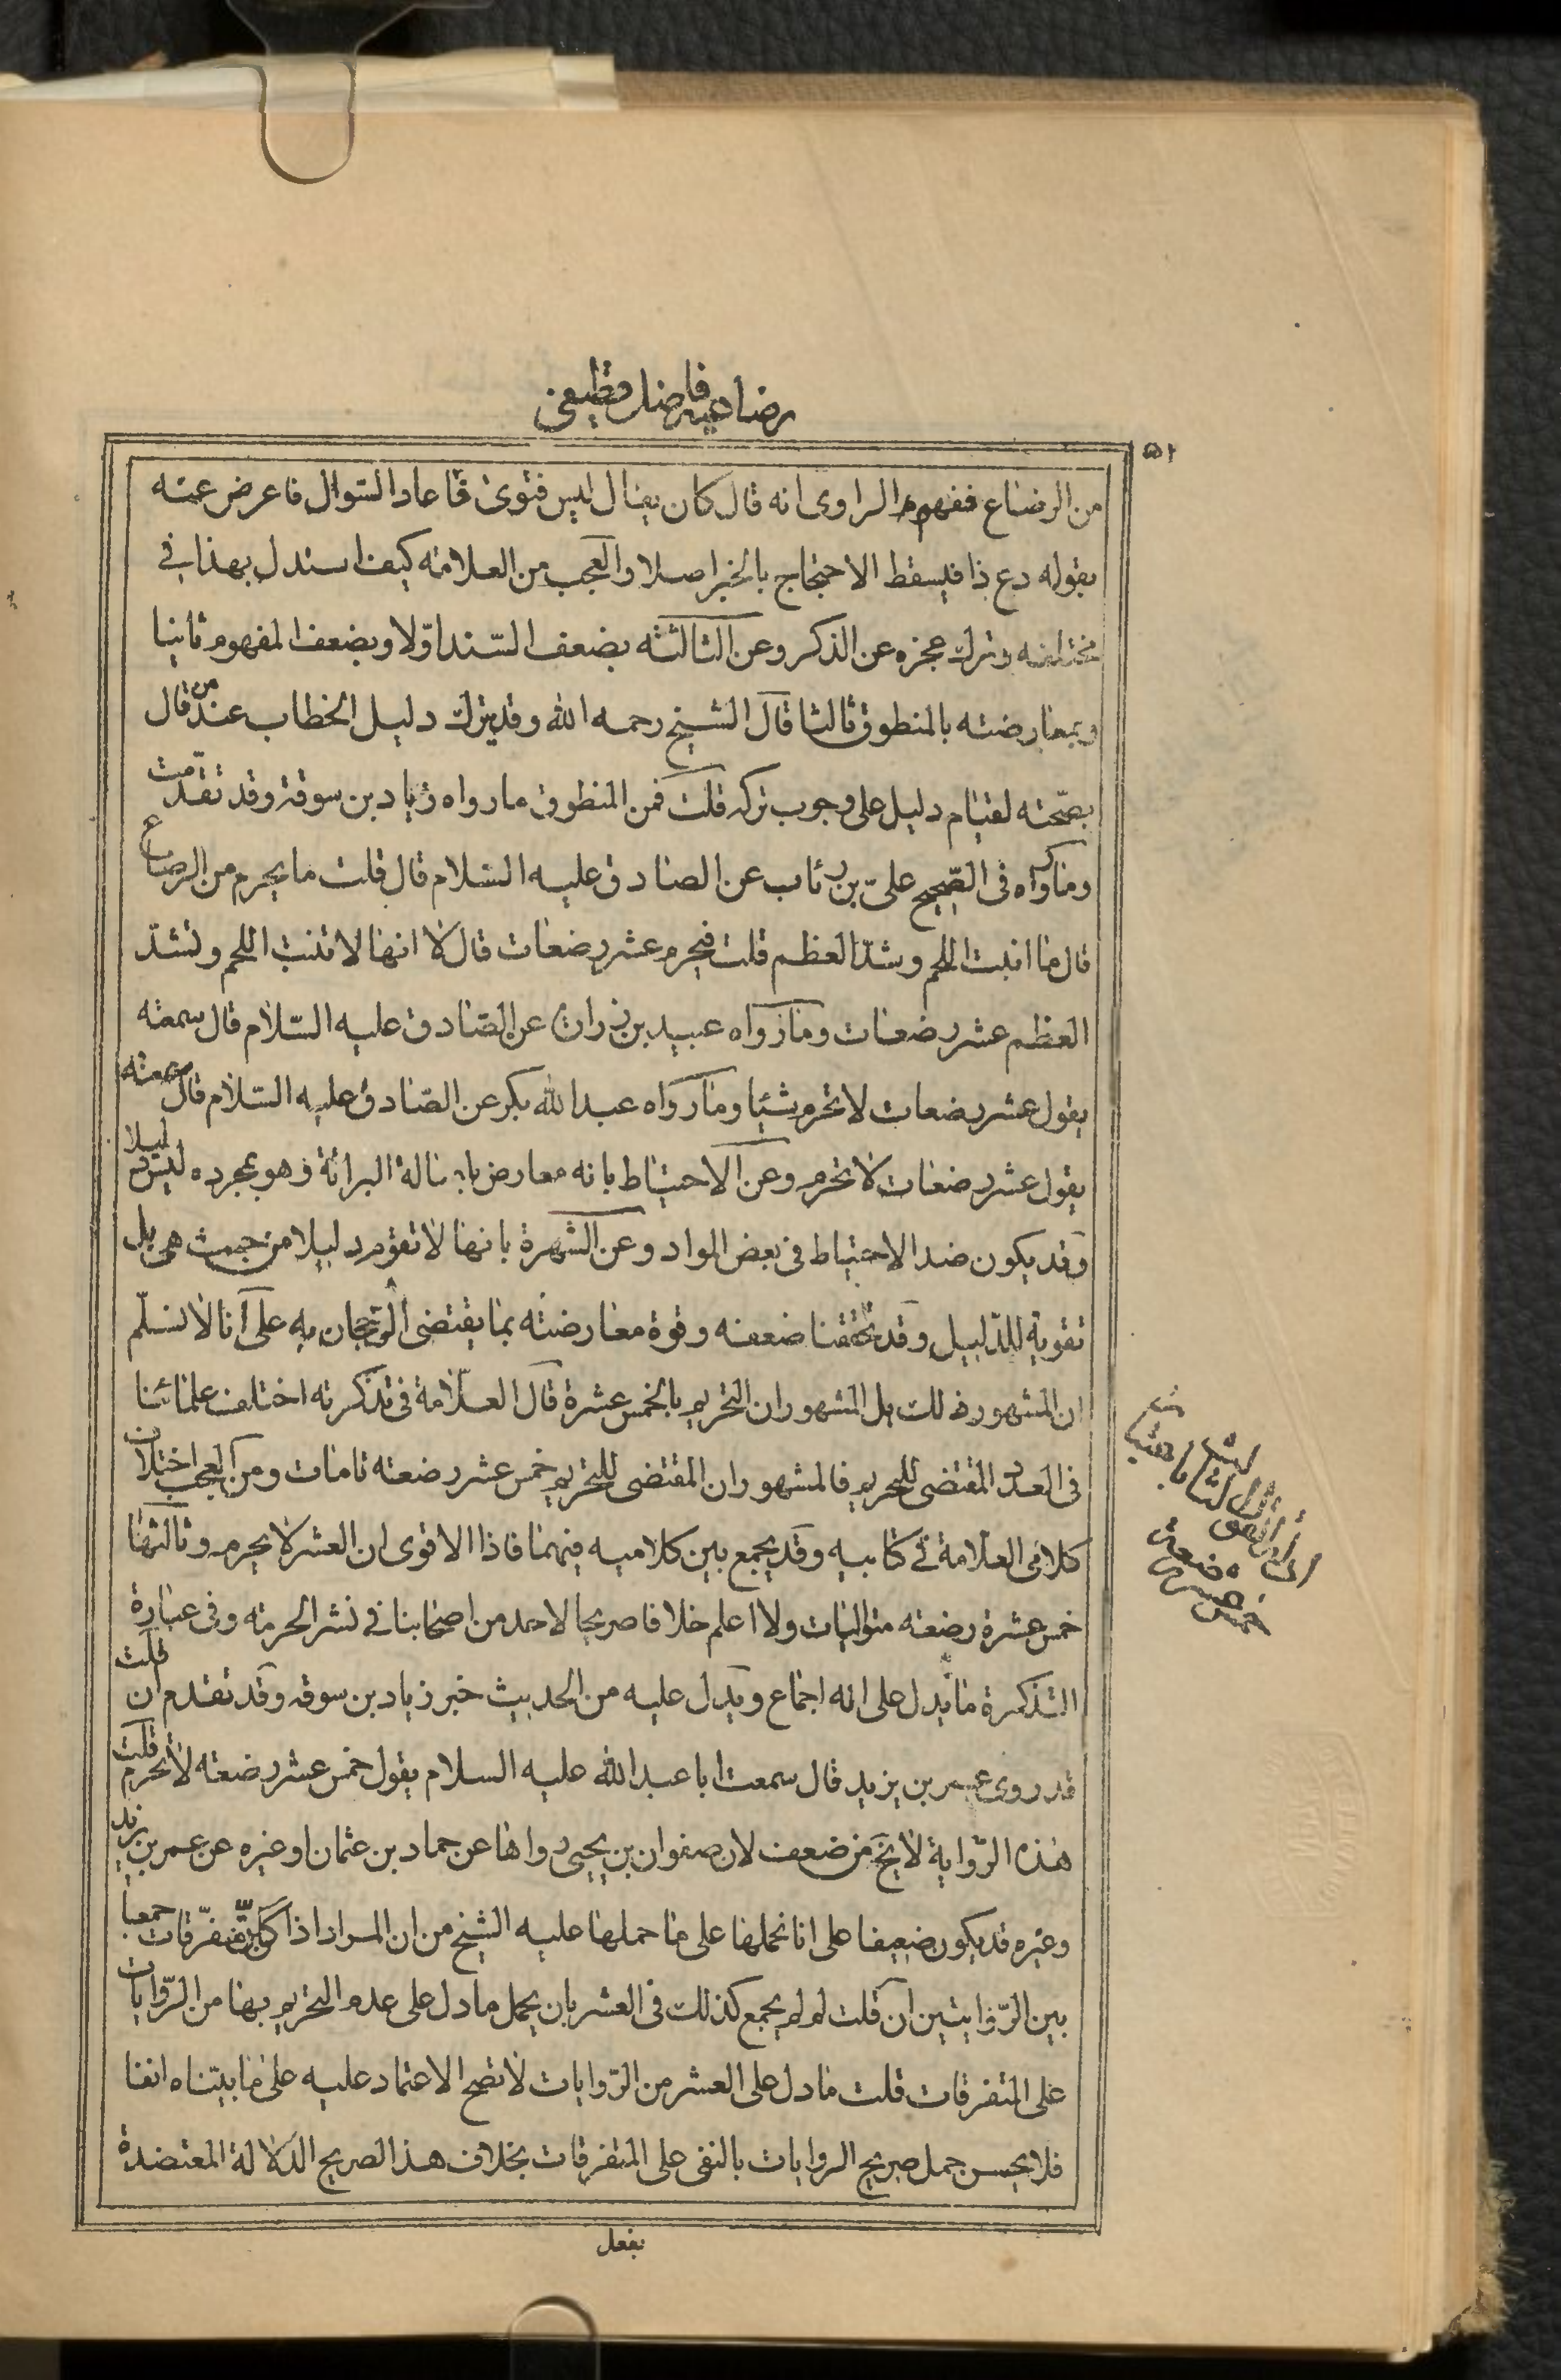 رضاعیه فاضل قطیفی
من الرضاع ففهم الراوى انه قال كان يقال ليس فتوى فاعاد السّوال فاعرض عنه
بقوله دع ذا فيسقط الاحتجاج بالخبر اصلا والعجب من العلامة كيف استدل بهذا فى
مختلفه وترك عجزه عن الذكر وعن الثالثة بضعف السّند اوّلا وبضعف المفهوم ثانيا
وبمعارضته بالمنطوق ثالثا قال الشيخ رحمه الله وقد يترك دليل الخطاب عند من قال
بصحّته لقيام دليل على وجوب تركه قلت فمن المنطوق مارواه زياد بن سوقة وقد تقدمت
وما رواه فى الصّحيح علىّ بن رئاب عن الصادق عليه السّلام قال قلت ما يحرم من الرضاع
قال ما انبت اللحم وشدّ العظم قلت فيحرم عشر رضعات قال لا انها لا تنبت اللحم وتشدّ
العظم عشر رضعات وما رواه عبيد بن زرارة عن الصّادق عليه السّلام قال سمعته
يقول عشر رضعات لا تحرم شيئا وما رواه عبد الله بكر عن الصّادق عليه السّلام قال سمعته
يقول عشر رضعات لا تحرم وعن الاحتياط بانه معارض باصالة البرائة وهو بمجرده ليس دليلا
وقد يكون ضد الاحتياط فى بعض المواد وعن الشهرة بانها لا تقوم دليلا من حيث هى بل
تقوية للدّليل وقد تحققنا ضعفه وقوة معارضته بما يقتضى الرّجحان به على انا لا نسلّم
ان المشهور ذلك بل المشهور ان التحريم بالخمس عشرة قال العلّامة فى تذكرته اختلف علمائنا
فى العدد المقتضى للتحريم فالمشهور ان المقتضى للتحريم خمس عشر رضعة تامات ومن العجب اختلاف
كلامى العلّامة فى كتابيه وقد يجمع بين كلاميه فيهما فاذا الاقوى ان العشر لا يحرم وثالثها
خمس عشرة رضعة متواليات ولا اعلم خلافا صريحا لاحد من اصحابنا فى نشر الحرمة وفى عبارة
التذكرة ما يدل على انه اجماع ويدل عليه من الحديث خبر زياد بن سوقه وقد تقدم ان قلت
قد روى عمر بن يزيد قال سمعت ابا عبد الله عليه السلام يقول خمس عشر رضعة لا تحرم قلت
هذه الرّواية لا يخ من ضعف لان صفوان بن يحيى رواها عن حماد بن عثمان او غيره عن عمر بن يزيد
وغيره قد يكون ضعيفا على انا نحملها على ما حملها عليه الشيخ من ان المراد اذا كنّ متفرّقات جمعا
بين الرّوايتين ان قلت لم لم يجمع كذلك فى العشر بان يحمل ما دل على عدم التحريم بها من الرّوايات
على المتفرقات قلت ما دل على العشر من الرّوايات لا تصح الاعتماد عليه على ما بيّناه انفا
فلا يحسن حمل صريح الروايات بالنفى على المتفرقات بخلاف هذا الصريح الدّلالة المعتضدة
بفعل